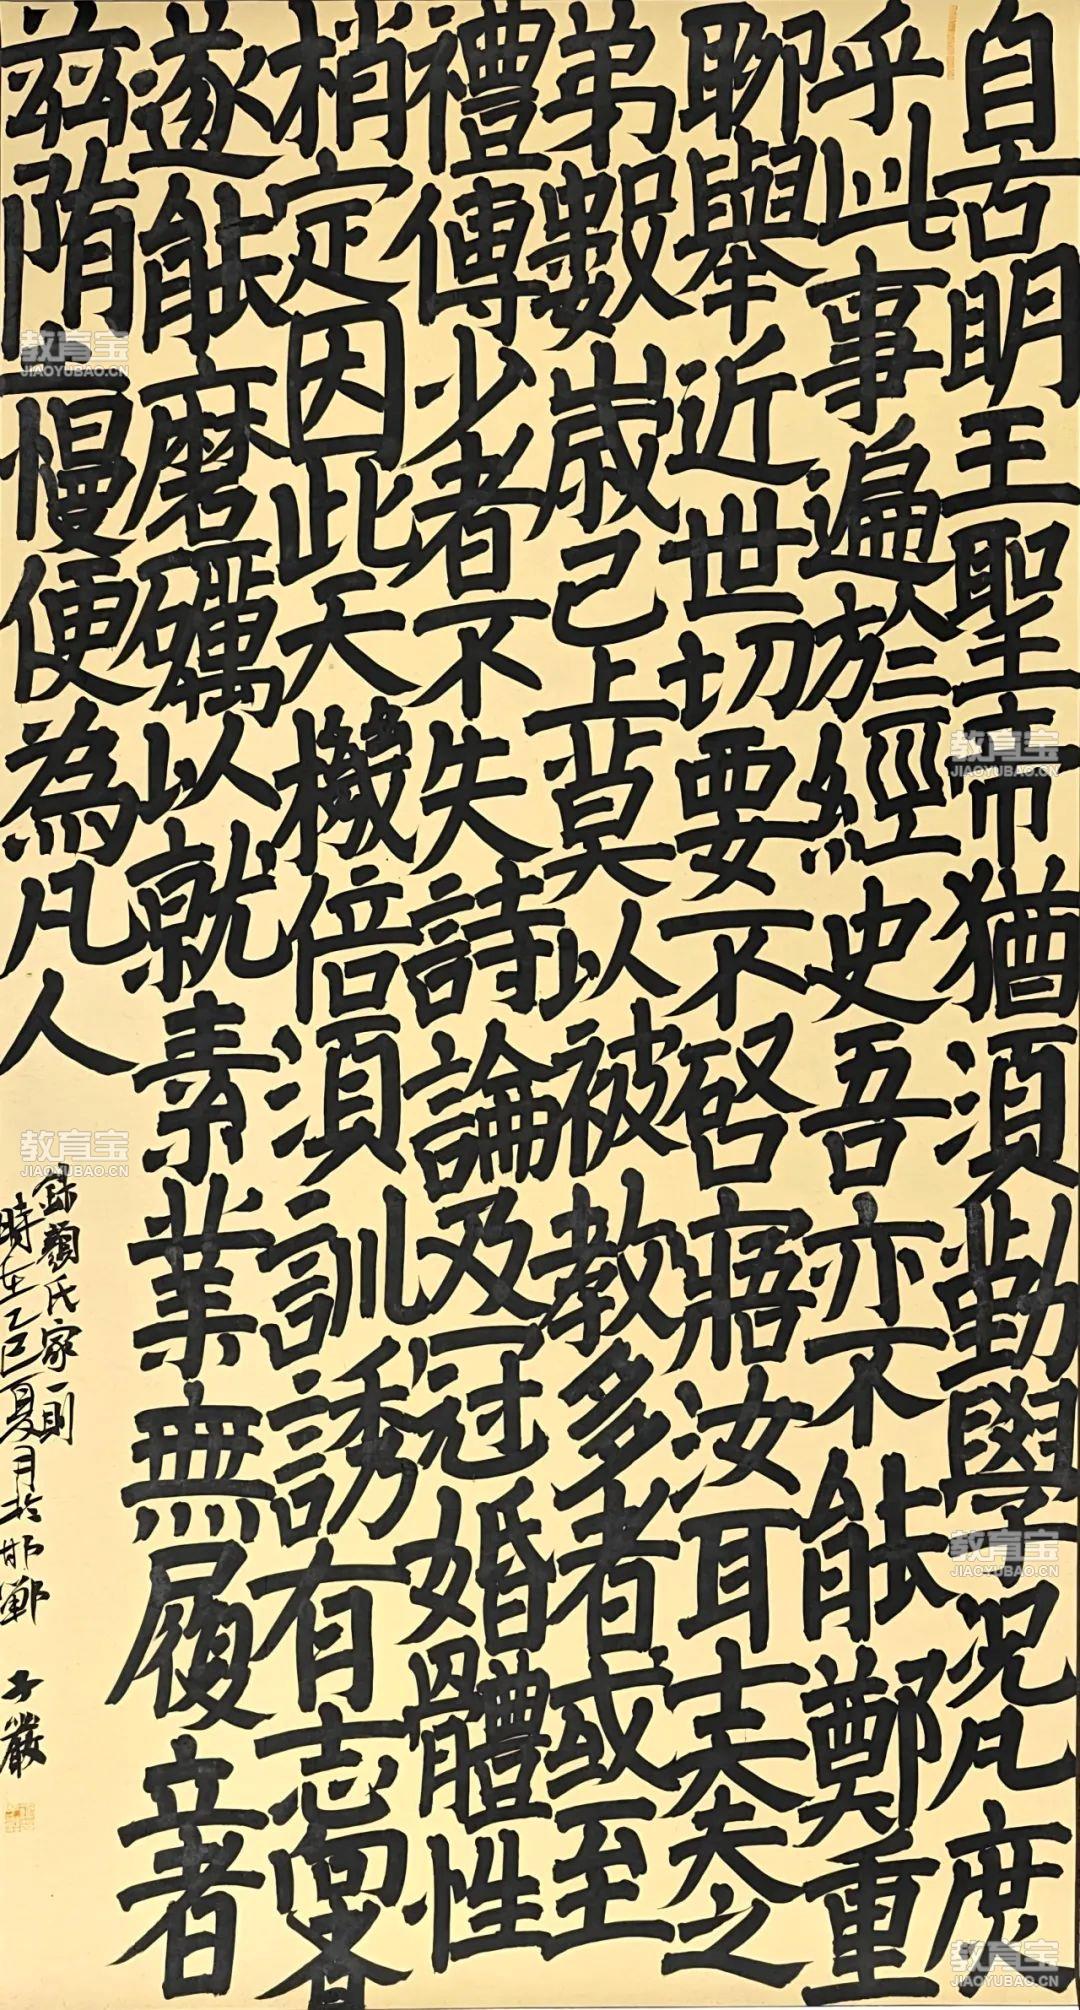 自古明王聖帝猶須勤學況凡庶
乎此事遍於經史吾亦不能鄭重
聊舉近世切要不啓寤汝耳士大夫之
弟數歲己上莫以被教多者或至
禮傳少者不失詩論及冠婚體性
梢定因此天機倍須訓誘有志尚者
遂能磨礪以就素業無履立者
兹隋慢便為凡人
錄顏氏家一則
時在乙巳夏月於邯鄲 子嚴
教育宝
JIAOYUBAO.CN
教育宝
JIAOYUBAO.CN
教育宝
JIAOYUBAO.CN
教育宝
JIAOYUBAO.CN
教育宝
JIAOYUBAO.CN